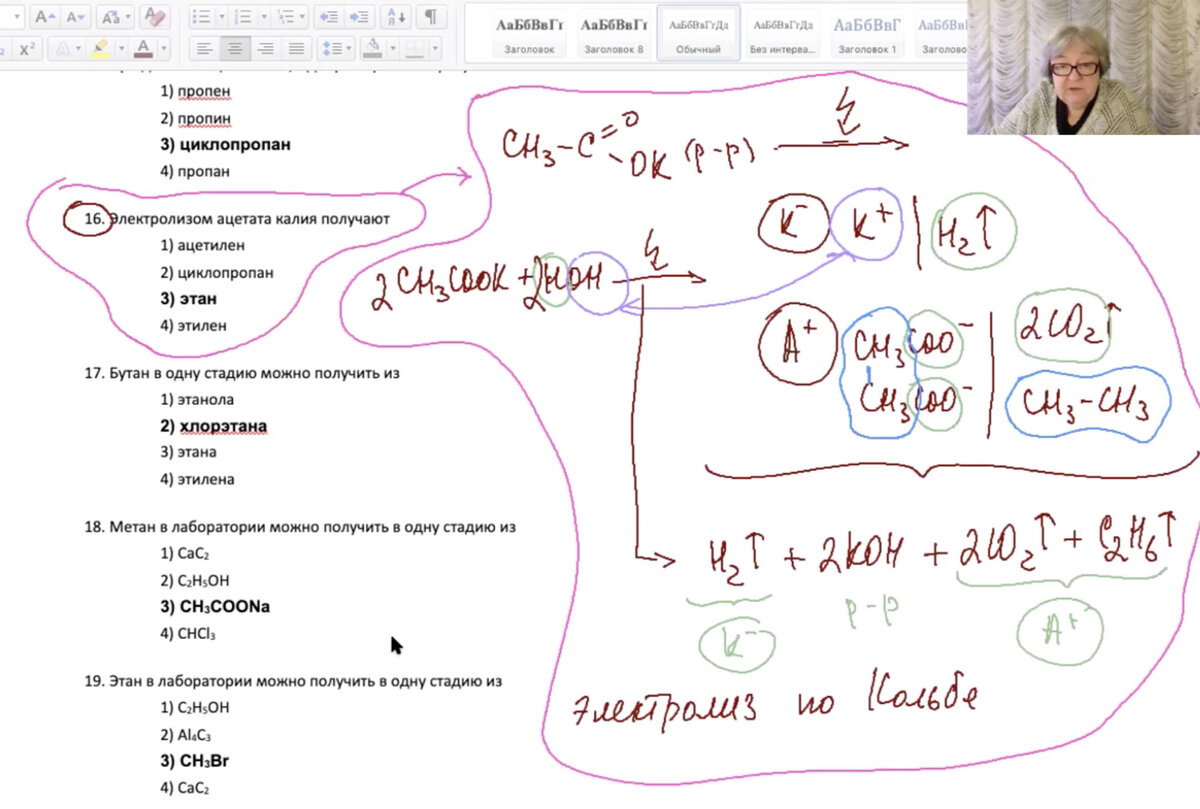 АаБбВвГг АаБбВвГг АаБбВвГгДд АаБбВвГгДд АаБбВвГ
Заголовок Заголовок 8 Обычный Без интерва... Заголовок 1
1) пропен
2) пропин
3) циклопропан
4) пропан
16. Электролизом ацетата калия получают
1) ацетилен
2) циклопропан
3) этан
4) этилен
17. Бутан в одну стадию можно получить из
1) этанола
2) хлорэтана
3) этана
4) этилена
18. Метан в лаборатории можно получить в одну стадию из
1) CaC₂
2) C₂H₅OH
3) CH₃COONa
4) CHCl₃
19. Этан в лаборатории можно получить в одну стадию из
1) C₂H₅OH
2) Al₄C₃
3) CH₃Br
4) CaC₂
CH₃-C=O -OK (р-р) →
K⁻ K⁺ | H₂↑
2CH₃COOK + 2HOH →
A⁺ CH₃COO⁻ | 2CO₂↑
CH₃COO⁻ | CH₃-CH₃
→ H₂↑ + 2KOH + 2CO₂↑ + C₂H₆↑
K⁻ р-р A⁺
Электролиз по Кольбе